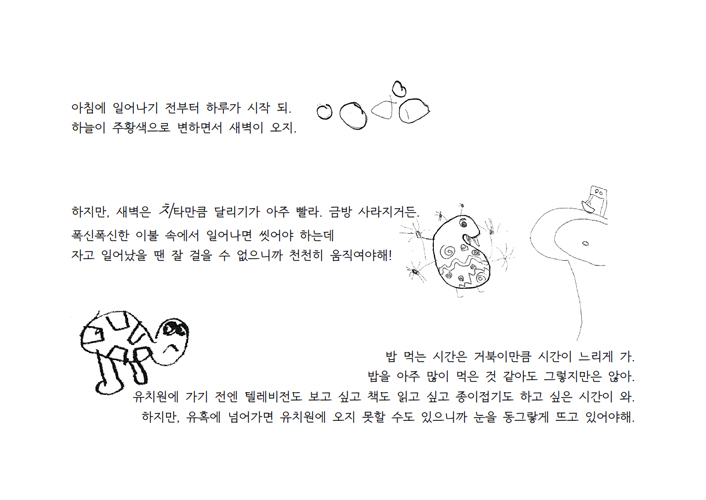 아침에 일어나기 전부터 하루가 시작 되.
하늘이 주황색으로 변하면서 새벽이 오지.
하지만, 새벽은 치타만큼 달리기가 아주 빨라. 금방 사라지거든.
폭신폭신한 이불 속에서 일어나면 씻어야 하는데
자고 일어났을 땐 잘 걸을 수 없으니까 천천히 움직여야해!
밥 먹는 시간은 거북이만큼 시간이 느리게 가.
밥을 아주 많이 먹은 것 같아도 그렇지만은 않아.
유치원에 가기 전엔 텔레비전도 보고 싶고 책도 읽고 싶고 종이접기도 하고 싶은 시간이 와.
하지만, 유혹에 넘어가면 유치원에 오지 못할 수도 있으니까 눈을 동그랗게 뜨고 있어야해.